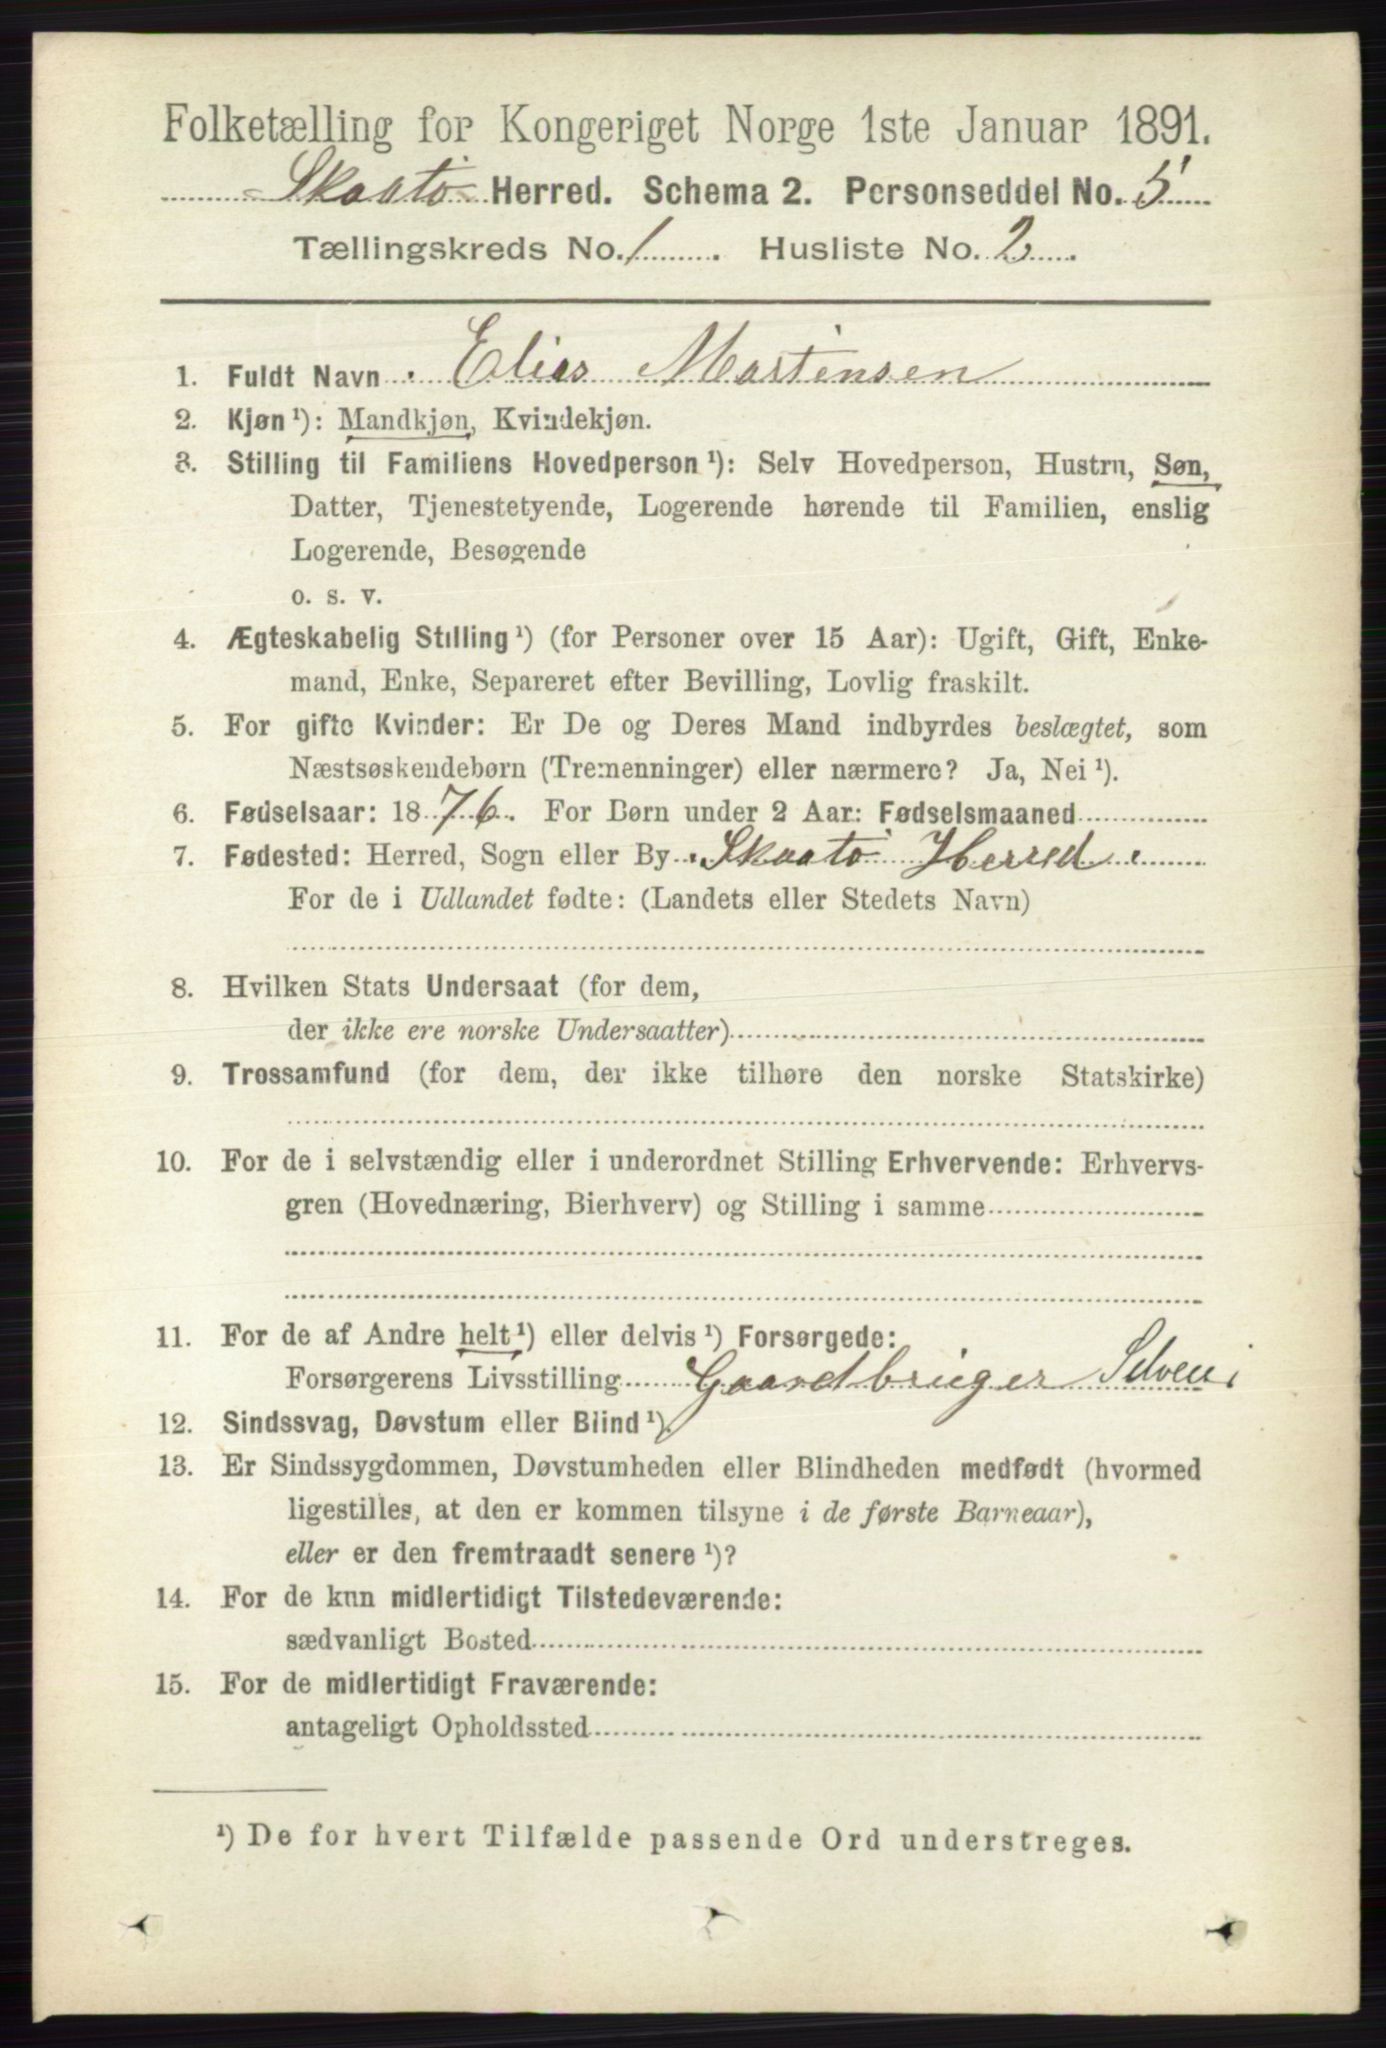 Folketælling for Kongeriget Norge 1ste Januar 1891.
Skaatö Herred. Schema 2. Personseddel No. 5
Tællingskreds No. 1. Husliste No. 2.
1. Fuldt Navn Elias Martensen
2. Kjøn ¹): Mandkjøn, Kvindekjøn.
3. Stilling til Familiens Hovedperson ¹): Selv Hovedperson, Hustru, Søn,
Datter, Tjenestetyende, Logerende hørende til Familien, enslig
Logerende, Besøgende
o. s. v.
4. Ægteskabelig Stilling ¹) (for Personer over 15 Aar): Ugift, Gift, Enke-
mand, Enke, Separeret efter Bevilling, Lovlig fraskilt.
5. For gifte Kvinder: Er De og Deres Mand indbyrdes beslægtet, som
Næstsøskendebørn (Tremenninger) eller nærmere? Ja, Nei ¹).
6. Fødselsaar: 1876. For Børn under 2 Aar: Fødselsmaaned
7. Fødested: Herred, Sogn eller By Skaatö Herred
For de i Udlandet fødte: (Landets eller Stedets Navn)
8. Hvilken Stats Undersaat (for dem,
der ikke ere norske Undersaatter)
9. Trossamfund (for dem, der ikke tilhøre den norske Statskirke)
10. For de i selvstændig eller i underordnet Stilling Erhvervende: Erhvervs-
gren (Hovednæring, Bierhverv) og Stilling i samme
11. For de af Andre helt ¹) eller delvis ¹) Forsørgede:
Forsørgerens Livsstilling Gaardbruger
12. Sindssvag, Døvstum eller Blind ¹).
13. Er Sindssygdommen, Døvstumheden eller Blindheden medfødt (hvormed
ligestilles, at den er kommen tilsyne i de første Barneaar),
eller er den fremtraadt senere ¹)?
14. For de kun midlertidigt Tilstedeværende:
sædvanligt Bosted
15. For de midlertidigt Fraværende:
antageligt Opholdssted
¹) De for hvert Tilfælde passende Ord understreges.